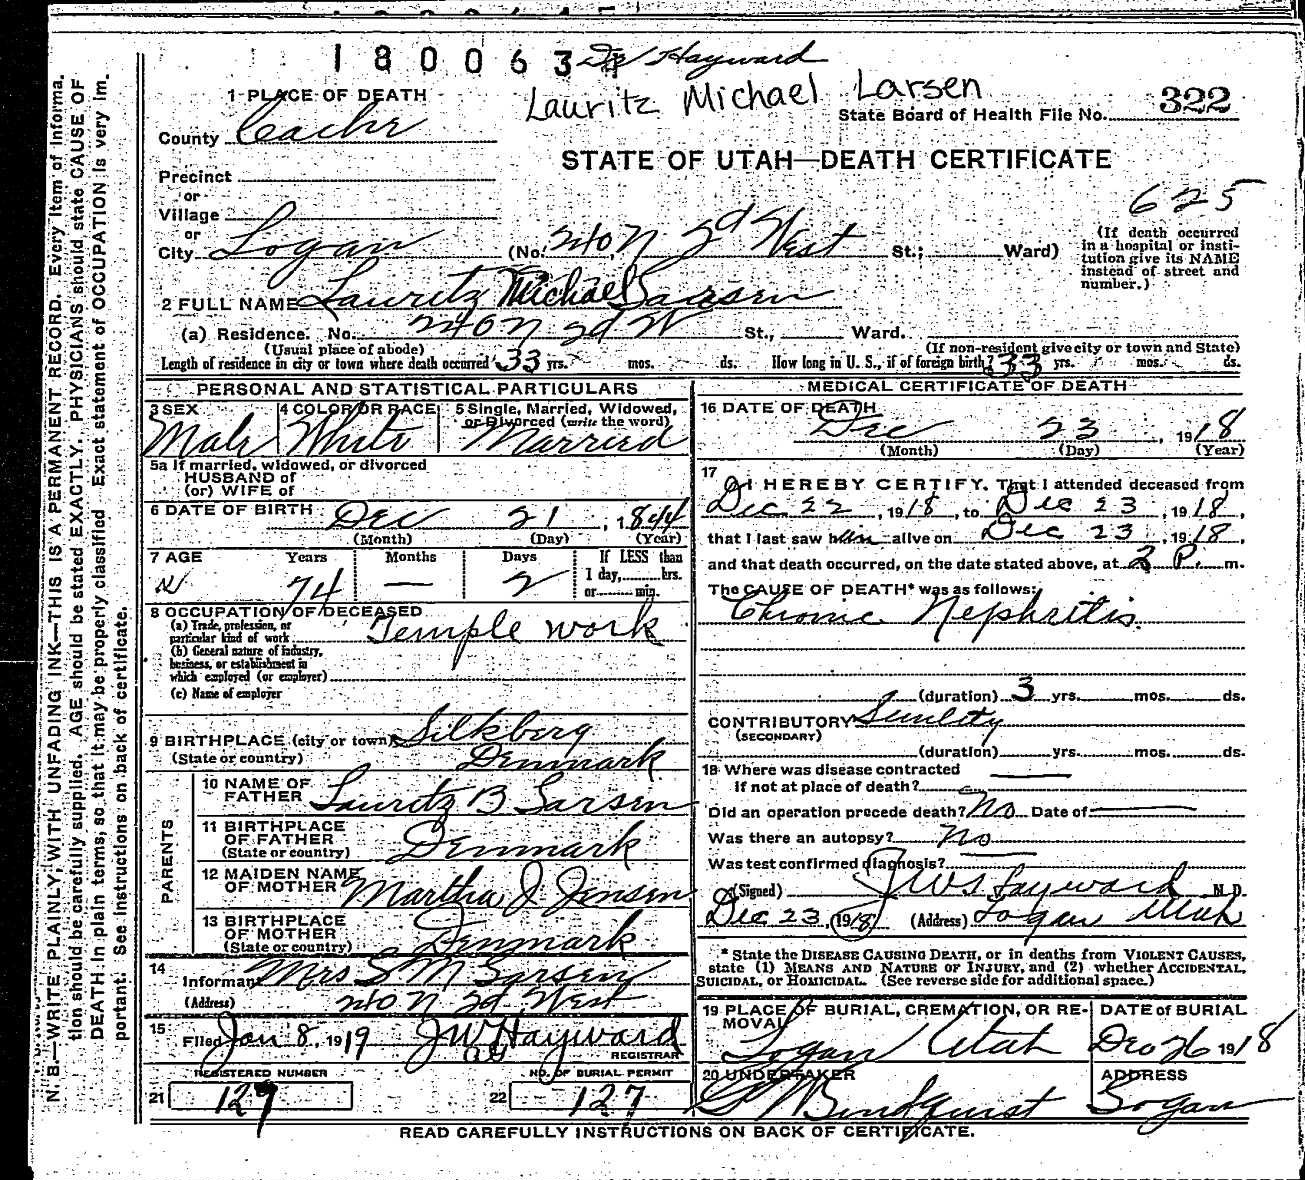 1800634
Dr Hayward
Lauritz Michael Larsen
State Board of Health File No. 322
1 PLACE OF DEATH
County Cache
STATE OF UTAH—DEATH CERTIFICATE
Precinct
or
Village
625
or
City Logan (No. 240 N 2d West St.; Ward)
(If death occurred in a hospital or insti-
tution give its NAME
instead of street and
number.)
2 FULL NAME Lauritz Michael Larsen
(a) Residence. No. 240 N 2d W St., Ward.
(Usual place of abode) (If non-resident give city or town and State)
Length of residence in city or town where death occurred 33 yrs. mos. ds. How long in U. S., if of foreign birth? 33 yrs. mos. ds.
PERSONAL AND STATISTICAL PARTICULARS
3 SEX 4 COLOR OR RACE 5 Single, Married, Widowed,
or Divorced (write the word)
Male White Married
5a If married, widowed, or divorced
HUSBAND of
(or) WIFE of
6 DATE OF BIRTH Dec 21, 1844
(Month) (Day) (Year)
7 AGE Years Months Days If LESS than
1 day, hrs.
or min.
74 — 2
8 OCCUPATION OF DECEASED
(a) Trade, profession, or
particular kind of work Temple work
(b) General nature of industry,
business, or establishment in
which employed (or employer)
(c) Name of employer
9 BIRTHPLACE (city or town) Silkberg
(State or country) Denmark
PARENTS
10 NAME OF
FATHER Lauritz B Larsen
11 BIRTHPLACE
OF FATHER
(State or country) Denmark
12 MAIDEN NAME
OF MOTHER Martha J Jensen
13 BIRTHPLACE
OF MOTHER
(State or country) Denmark
14
Informant Mrs L M Larsen
(Address) 240 N 2d West
15
Filed Jan 8, 1919 J W Hayward
REGISTRAR
REGISTERED NUMBER NO. OF BURIAL PERMIT
21 127 22 127
MEDICAL CERTIFICATE OF DEATH
16 DATE OF DEATH
Dec 23, 1918
(Month) (Day) (Year)
17
I HEREBY CERTIFY, That I attended deceased from
Dec 22, 1918, to Dec 23, 1918,
that I last saw him alive on Dec 23, 1918,
and that death occurred, on the date stated above, at 2 P. m.
The CAUSE OF DEATH* was as follows:
Chronic Nephritis.
(duration) 3 yrs. mos. ds.
CONTRIBUTORY Senility
(SECONDARY)
(duration) yrs. mos. ds.
18 Where was disease contracted
if not at place of death?
Did an operation precede death? No Date of
Was there an autopsy? No
Was test confirmed diagnosis?
(Signed) J W Hayward M D
Dec 23, 1918 (Address) Logan Utah
* State the DISEASE CAUSING DEATH, or in deaths from VIOLENT CAUSES,
state (1) MEANS AND NATURE OF INJURY, and (2) whether ACCIDENTAL,
SUICIDAL, or HOMICIDAL. (See reverse side for additional space.)
19 PLACE OF BURIAL, CREMATION, OR RE-
MOVAL
Logan Utah
DATE of BURIAL
Dec 26 1918
20 UNDERTAKER
ADDRESS
Logan
READ CAREFULLY INSTRUCTIONS ON BACK OF CERTIFICATE.
N. B.—WRITE PLAINLY, WITH UNFADING INK—THIS IS A PERMANENT RECORD. Every item of informa-
tion should be carefully supplied. AGE should be stated EXACTLY. PHYSICIANS should state CAUSE OF
DEATH in plain terms, so that it may be properly classified. Exact statement of OCCUPATION is very im-
portant. See instructions on back of certificate.